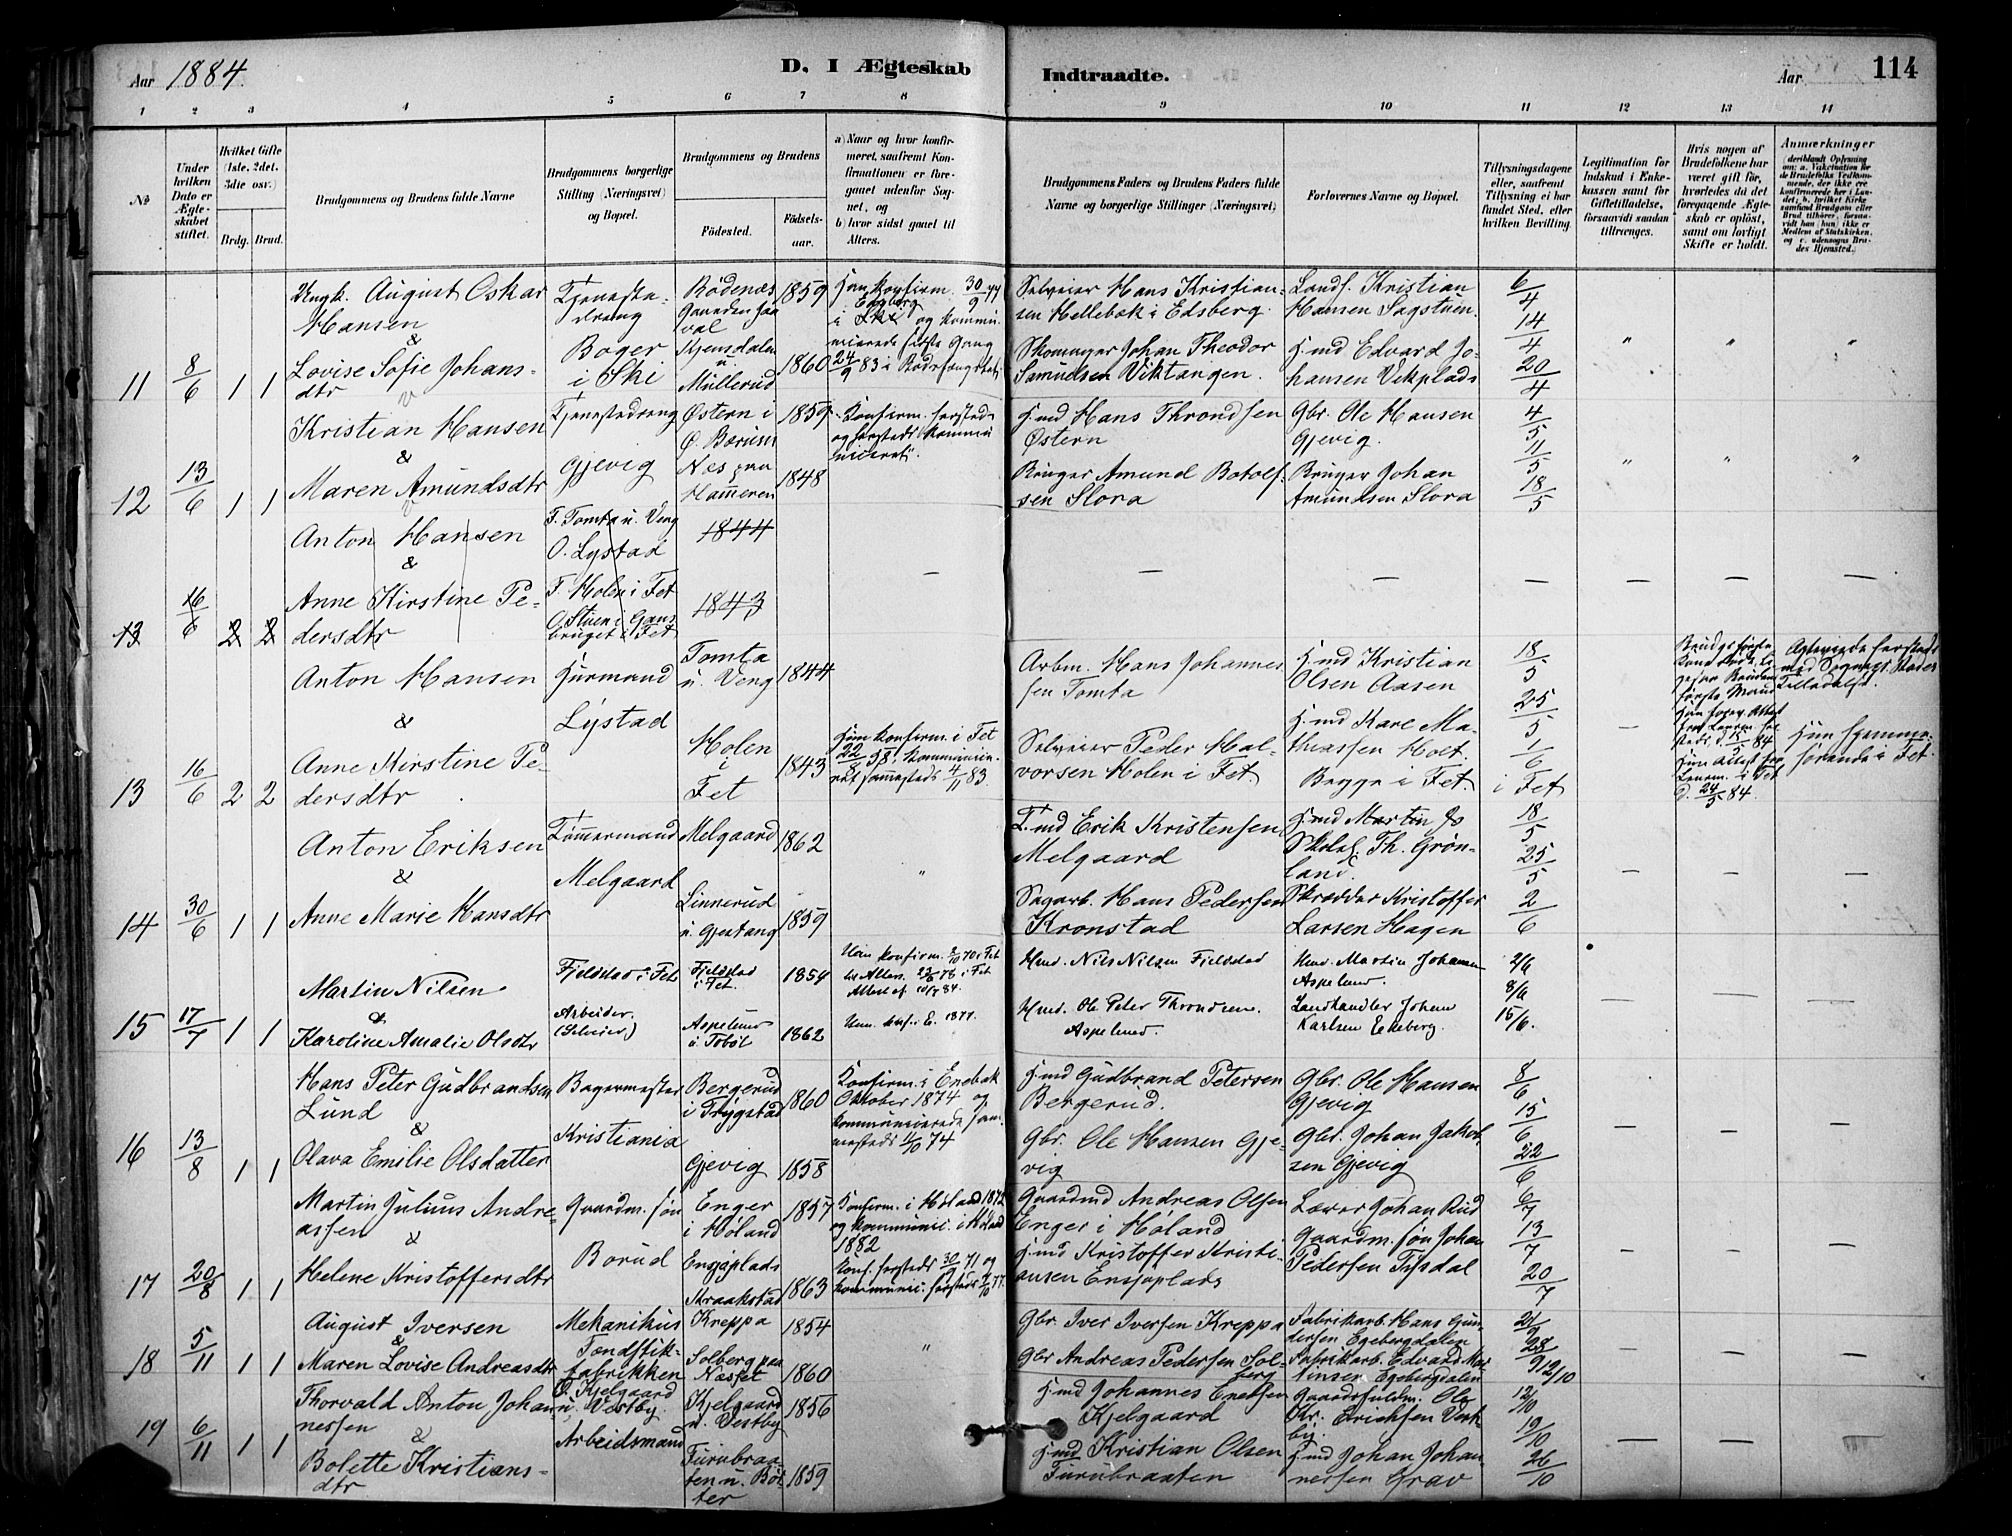 Aar 1884. D. I Ægteskab Indtraadte. Aar 114
1 2 3 4 5 6 7 8 9 10 11 12 13 14
№
Under hvilken Dato er Ægteskabet stiftet.
Hvilket Gifte (1ste, 2det, 3die osv.)
Brdg. Brud.
Brudgommens og Brudens fulde Navne
Brudgommens borgerlige Stilling (Næringsvei) og Bopæl.
Brudgommens og Brudens
Fødested. Fødselsaar.
a) Naar og hvor konfirmeret, saafremt Konfirmationen er foregaaet udenfor Sognet, og
b) hvor sidst gaaet til Alters.
Brudgommens Faders og Brudens Faders fulde Navne og borgerlige Stillinger (Næringsvei)
Forlovernes Navne og Bopæl.
Tillysningsdagene eller, saafremt Tillysning ei har fundet Sted, efter hvilken Bevilling.
Legitimation for Indskud i Enkekassen samt for Giftetilladelse, forsaavidt saadan tiltrænges.
Hvis nogen af Brudefolkene har været gift før, hvorledes da det foregaaende Ægteskab er opløst, samt om lovligt Skifte er holdt.
Anmerkninger
11 8/6 1 1
Ungk. August Oskar
Hansen
&
Lovise Sofie Johans-
dtr
Tjeneste-
dreng
Boger
i Ski
Bødenæs
1859
Kjensdalen
u.
Müllerud
1860
Selveier Hans Kristian-
sen Hellebæk i Edsberg.
Skomager Johan Theodor
Samuelsen Viktangen.
Landh. Kristian
Hansen Sagstuen
H.md Edvard Jo-
hansen Vikplads
6/4
14/4
20/4
12 13/6 1 1
Kristian Hansen
&
Maren Amundsdtr
Tjenestedreng
Gjevig
Østern i
Ø. Bærum
1859
Næs paa
Hammeren
1848
Konfirm. hersteds
og hersteds kommu
niceret.
H.md Hans Throndsen
Østern
Bruger Amund Botolf-
sen Slora
Gbr. Ole Hansen
Gjevig.
Bruger Johan
Amundsen Slora
4/5
11/5
18/5
13 16/6 2 2
Anton Hansen
&
Anne Kirstine Pe-
dersdtr
F. Tomta u. Veng
O. Lystad
F. Holen i Fet
O. Stuen i Gans
bruget i Fet
1844
1843
13 16/6 2 2
Anton Hansen
&
Anne Kirstine Pe-
dersdtr
Husmand
Lystad
Tomta
u. Veng
1844
Holen
i
Fet
1843
Hun konfirm. i Fet
22/8 58. Kommunice-
ret sammesteds 4/11 83.
Arbm. Hans Johannes
sen Tomta
Selveier Peder Hal-
vorsen Holen i Fet.
H.md Kristian
Olsen Aasen
H.md Kare Ma-
thiassen Holt
Brygge i Fet.
18/5
25/5
1/6
i Fet
Hun hjemme-
hørende i Fet.
14 30/6 1 1
Anton Eriksen
&
Anne Marie Hansdtr
Tømmermand
Melgaard
Melgaard
1862
Linnerud
u. Gjestang
1859
T.md Erik Kristensen
Melgaard
Sagarb. Hans Pedersen
Kronstad
Skolel. Th. Grøn-
land.
Skrædder Kristoffer
Larsen Hagen
18/5
25/5
2/6
15 17/7 1 1
Martin Nilsen
&
Karoline Amalie Olsdtr
Fjeldstad i Fet
Arbeider.
(Selveier)
Fjeldstad
i Fet.
1854
Aspelund
u. Tobøl
1862
Hmd. Nils Nilsen Fjeldstad
Hmd. Ole Peter Throndsen.
Aspelund.
Hmd. Martin Johansen
Aspelund.
Landhandler Johan
Karlsen Ekeberg.
2/6
8/6
15/6.
16 13/8 1 1
Hans Peter Gudbrandsen
Lund
&
Olava Emilie Olsdatter
Bagermester
Kristiania
Bergerud
i Trygstad
1860
Gjevig
1858
Konfirm. i Enebak
Oktober 1874 og
kommunicerede sam-
mesteds 11/10 74
H.md Gudbrand Petersen
Bergerud.
Gbr. Ole Hansen Gje-
vig
Gbr. Ole Hansen
Gjevig
Gbr. Johan Jakob-
sen Gjevig
8/6
15/6
22/6
17 20/8 1 1
Martin Julius Andre-
assen
&
Helene Kristoffersdtr
Gaardm. søn
Borud
Enger
i Høland
1857
Ensjøplads
Kraakstad
1863
Konfirm. i Høland 1872
og kommunic. i Høland
1882
Konf. hersteds 30/9 71 og
kommunic. hersteds
Gaardmd Andreas Olsen
Enger i Høland
H.md Kristoffer Kristi-
ansen Ensjøplads
Lærer Johan Rud
Gaardm. søn Johan
Pedersen Tysdal
6/7
13/7
20/7
18 5/11 1 1
August Iversen
&
Maren Lovise Andreasdtr
Mekanikus
Tændstik-
fabrikken
Kreppa
1854
Solberg paa
Næsset
1860
Gbr Iver Iversen Kreppa
Gbr Andreas Pedersen Sol-
berg
Fabrikarb. Hans Gun-
dersen Egebergdalen
Fabrikarb. Edvard Mar-
tinsen Egebergdalen
21/9
28/9
12/10
19 6/11 1 1
Thorvald Anton Johan-
nessen
&
Bolette Kristians-
dtr
Kjelgaard
u. Vestby.
Arbeidsmand
Kjelgaard
u. Vestby
1856
Furubraa-
ten u. Bøt-
ter
1859
H.md Johannes Enersen
Kjelgaard
H.md Kristian Olsen
Furubraaten
Ole
Kr. Erichsen Vest-
by.
H.md Johan Johan-
nessen Grav
12/10
19/10
26/10